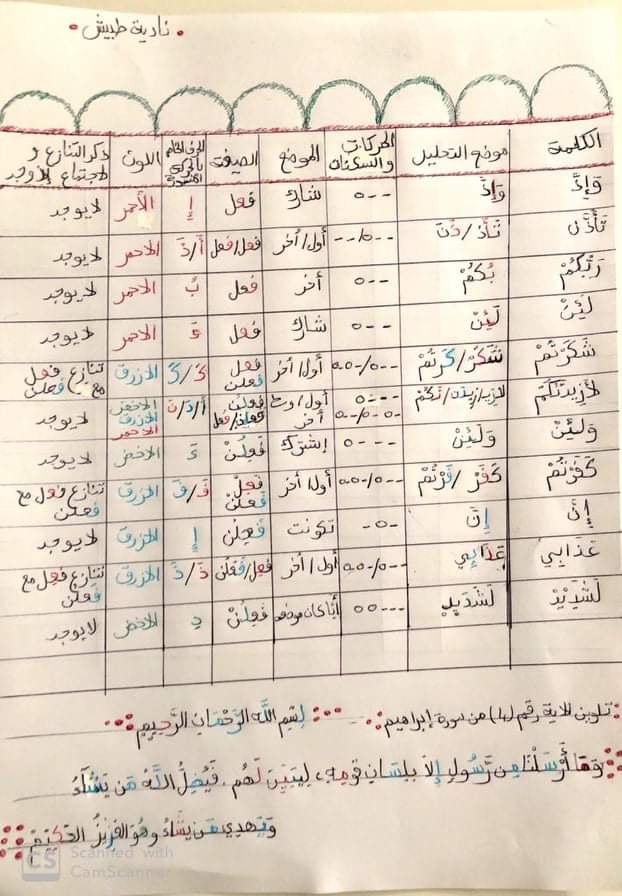 نادية طبيش
الكلمة موضع التحليل الحركات والسكنات الموضع الصيغة اللون ذكر التنازع و
وَإِذَّ وَإِذَّ ---o شارك فعل إِ الأحمر لا يوجد
تَأَذَّن تَأَذَّ/ذَّنَ أول/أخر فعل/فعل أَ/ذَّ الاحمر لا يوجد
رَبُّكُمْ بُكُمْ --o أخر فعل بُ الاحمر لا يوجد
لَئِنْ لَئِنْ --o شارك فعل الاحمر لا يوجد
شَكَرْتُمْ شَكَرْ/كَرْتُمْ أول/أخر فعل فعلن كَ/كَ الازرق تنازع فعل مع فعلن
لأزِيدَنَّكُمْ لا يوجد
وَلَئِنْ وَلَئِنْ ---o إشترك فَعِلُنْ الاخضر لا يوجد
كَفَرْتُمْ كَفَرْ/فَرْتُمْ أول/أخر فعل فعلن فَ/فَ الازرق تنازع فعل مع فعلن
إِنَّ إِنَّ -o- تكونت فعلن إِ الازرق لا يوجد
عَذَابِي عَذَابِي أول/أخر فعل/فعلن ذَ/ذَ الازرق تنازع فعل مع فعلن
لَشَدِيدْ لَشَدِيدٍ فَعِلُنْ دِ الاخضر لا يوجد
تلوين الآية رقم (4) من سورة إبراهيم: بِسْمِ اللَّهِ الرَّحْمَانِ الرَّحِيمِ
وَمَا أَرْسَلْنَا مِن رَّسُولٍ إِلاَّ بِلِسَانِ قَوْمِهِ، لِيُبَيِّنَ لَهُم. فَيُضِلُّ اللَّهُ مَن يَشَآءُ
وَيَهْدِي مَن يَشَاءُ وَهُوَ العَزِيزُ الحَكِيمُ
CS Scanned with
CamScanner